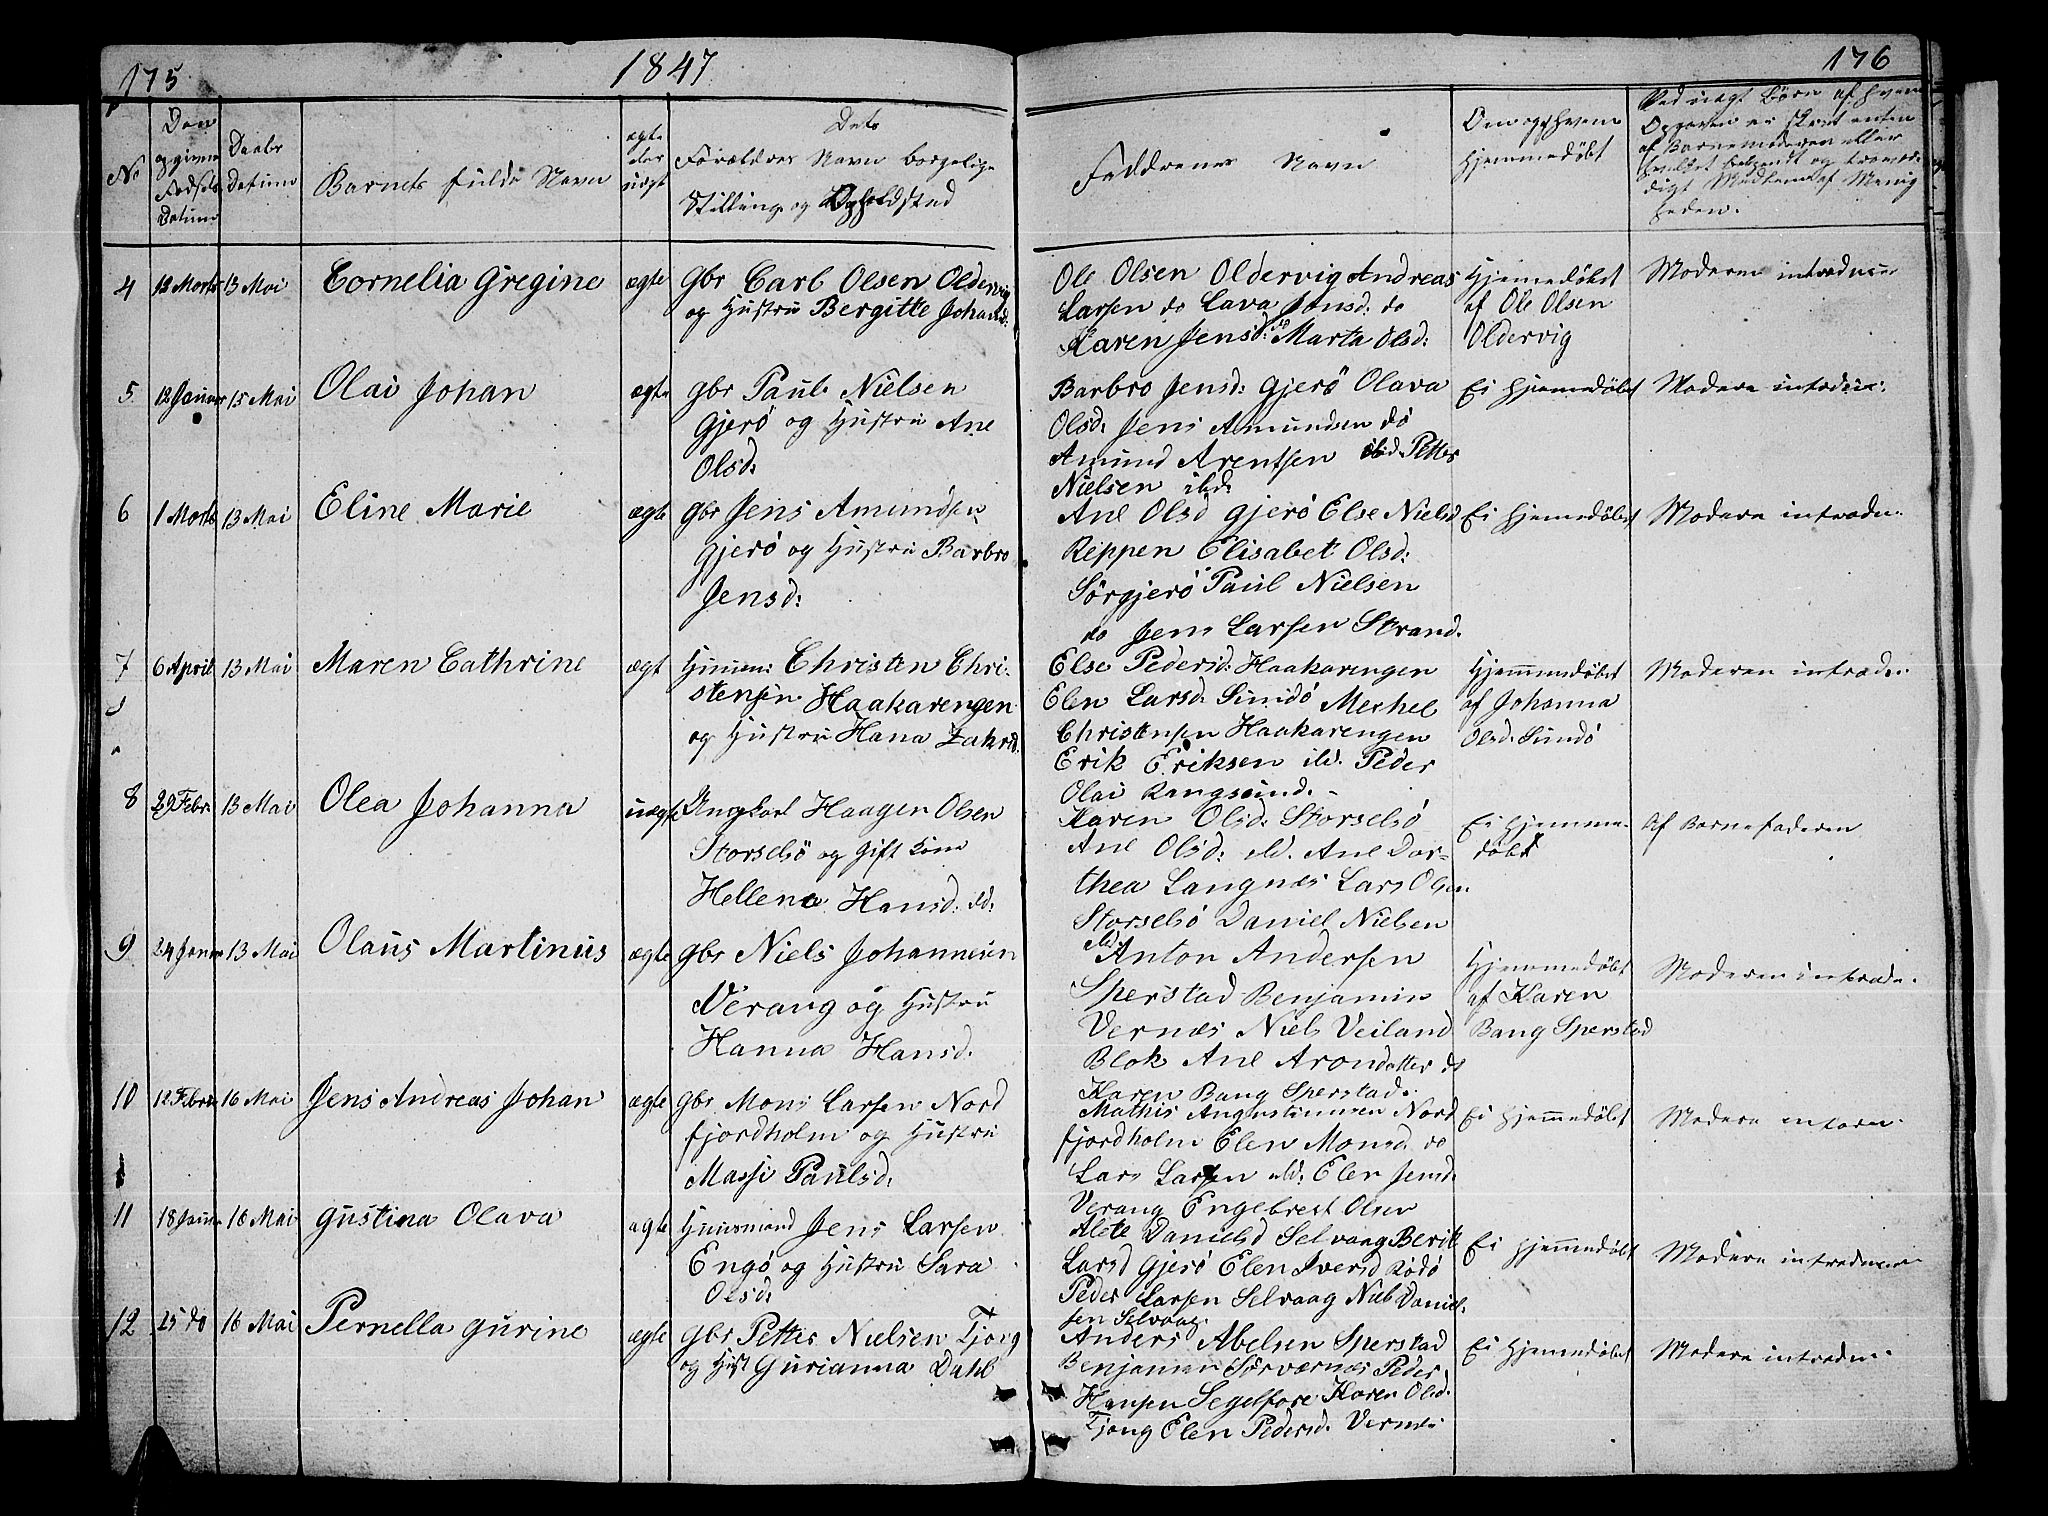 175
1847
176
No
Den opgivne Fødsels Datum
Daabs Datum
Barnets fulde Navn
ægte eller uægt
Dets
Forældres Navn borgelige
Stilling og Opholdsted
Faddrenes Navn
Om og af hvem
Hjemmedøbt
Ved uægt Børn af hvem
Opgaven er skeet enten
af Barnemoderen eller
digt Medlem af Menig
heden.
4 12 Marts 13 Mai Cornelia Gregine ægte Gbr Carl Olsen Oldervig
og Hustru Bergitte Johansd:
Ole Olsen Oldervig Andreas
Larsen do Lava Jonsd: do
Karen Jensd: do Marta Olsd:
Hjemmedøbt
af Ole Olsen
Oldervig
Moderen introducer
5 12 Januar 15 Mai Olai Johan ægte gbr Paul Nielsen
Gjerö og Hustru Ane
Olsd:
Barbro Jensd: Gjerö Olava
Olsd: Jens Amundsen do
Amund Arentsen ibd: Petter
Nielsen ibd:
Ei Hjemmedøbt
Modere introdu:
6 1 Marts 13 Mai Eline Marie ægte Gbr Jens Amundsen
Gjerö og Hustru Barbro
Jensd:
Ane Olsd Gjerö Else Nielsd
Reppen Elisabet Olsd:
Sörgjerö Paul Nielsen
do Jens Larsen Strand.
Ei Hjemedøbt
Modere introdu.
7 6 April 13 Mai Maren Cathrine ægt Huusm: Christen Chri-
stensen Haakarengen
og Hustru Hana Zakrd.
Else Pedersd: Haakarengen
Elen Larsd: Sundö Merhel
Christensen Haakarengen
Erik Eriksen ibd. Peder
Olai Rangsund.
Hjemmedøbt
af Johanna
Olsd: Sundö
Moderen introdu.
8 29 Febr 13 Mai Olea Johanna uægte Ungkarl Haagen Olsen
Storselsö og Gift Kone
Hellena Hansd: ibd:
Karen Olsd: Storselsö
Ane Olsd: ibd. Ane Dor-
thea Langnæs Lars Olsen
Storselsö Daniel Nielsen
ibd:
Ei Hjemme-
døbt
Af Barnefaderen
9 24 Januar 13 Mai Olaus Martinus ægte Gbr Niels Johannesen
Verang og Hustru
Hanna Hansd.
Anton Andersen
Sperstad Benjamin
Vernæs Niels Veiland
Blok Ane Arondatter do
Karen Bang Sperstad.
Hjemmedøbt
af Karen
Bang Sperstad
Moderen introdu.
10 12 Febru 16 Mai Jens Andreas Johan ægte Gbr. Mons Larsen Nord
fjordholm og Hustru
Massi Paulsd:
Mathis Augustinusen Nord
fjordholm Elen Monsd. do
Lars Larsen ibd: Elen Jensd.
Verang Engebregt Olsen
Ei Hjemmedøbt
Modere
11 18 Januar 16 Mai Gustina Olava ægte Huusmand Jens Larsen
Engö og Hustru Sara
Olsd:
Alete Danielsd Selvaag Berit
Larsd Gjerö Elen Iversd Rödö
Peder Larsen Selvaag Niels Daniel-
sen Selvaag.
Ei Hjemmedøbt
Modere introducer
12 25 do 16 Mai Pernella Gurine ægte Gbr Petter Nielsen Tjong
og Hust Gurianna Dahl
Anders Abelsen Sperstad
Benjamin Sörvernæs Peder
Hansen Segelfore Karen Olsd.
Tjong Elen Pedersd. Vernæs
Ei Hjemmedøbt
Modere introdu.